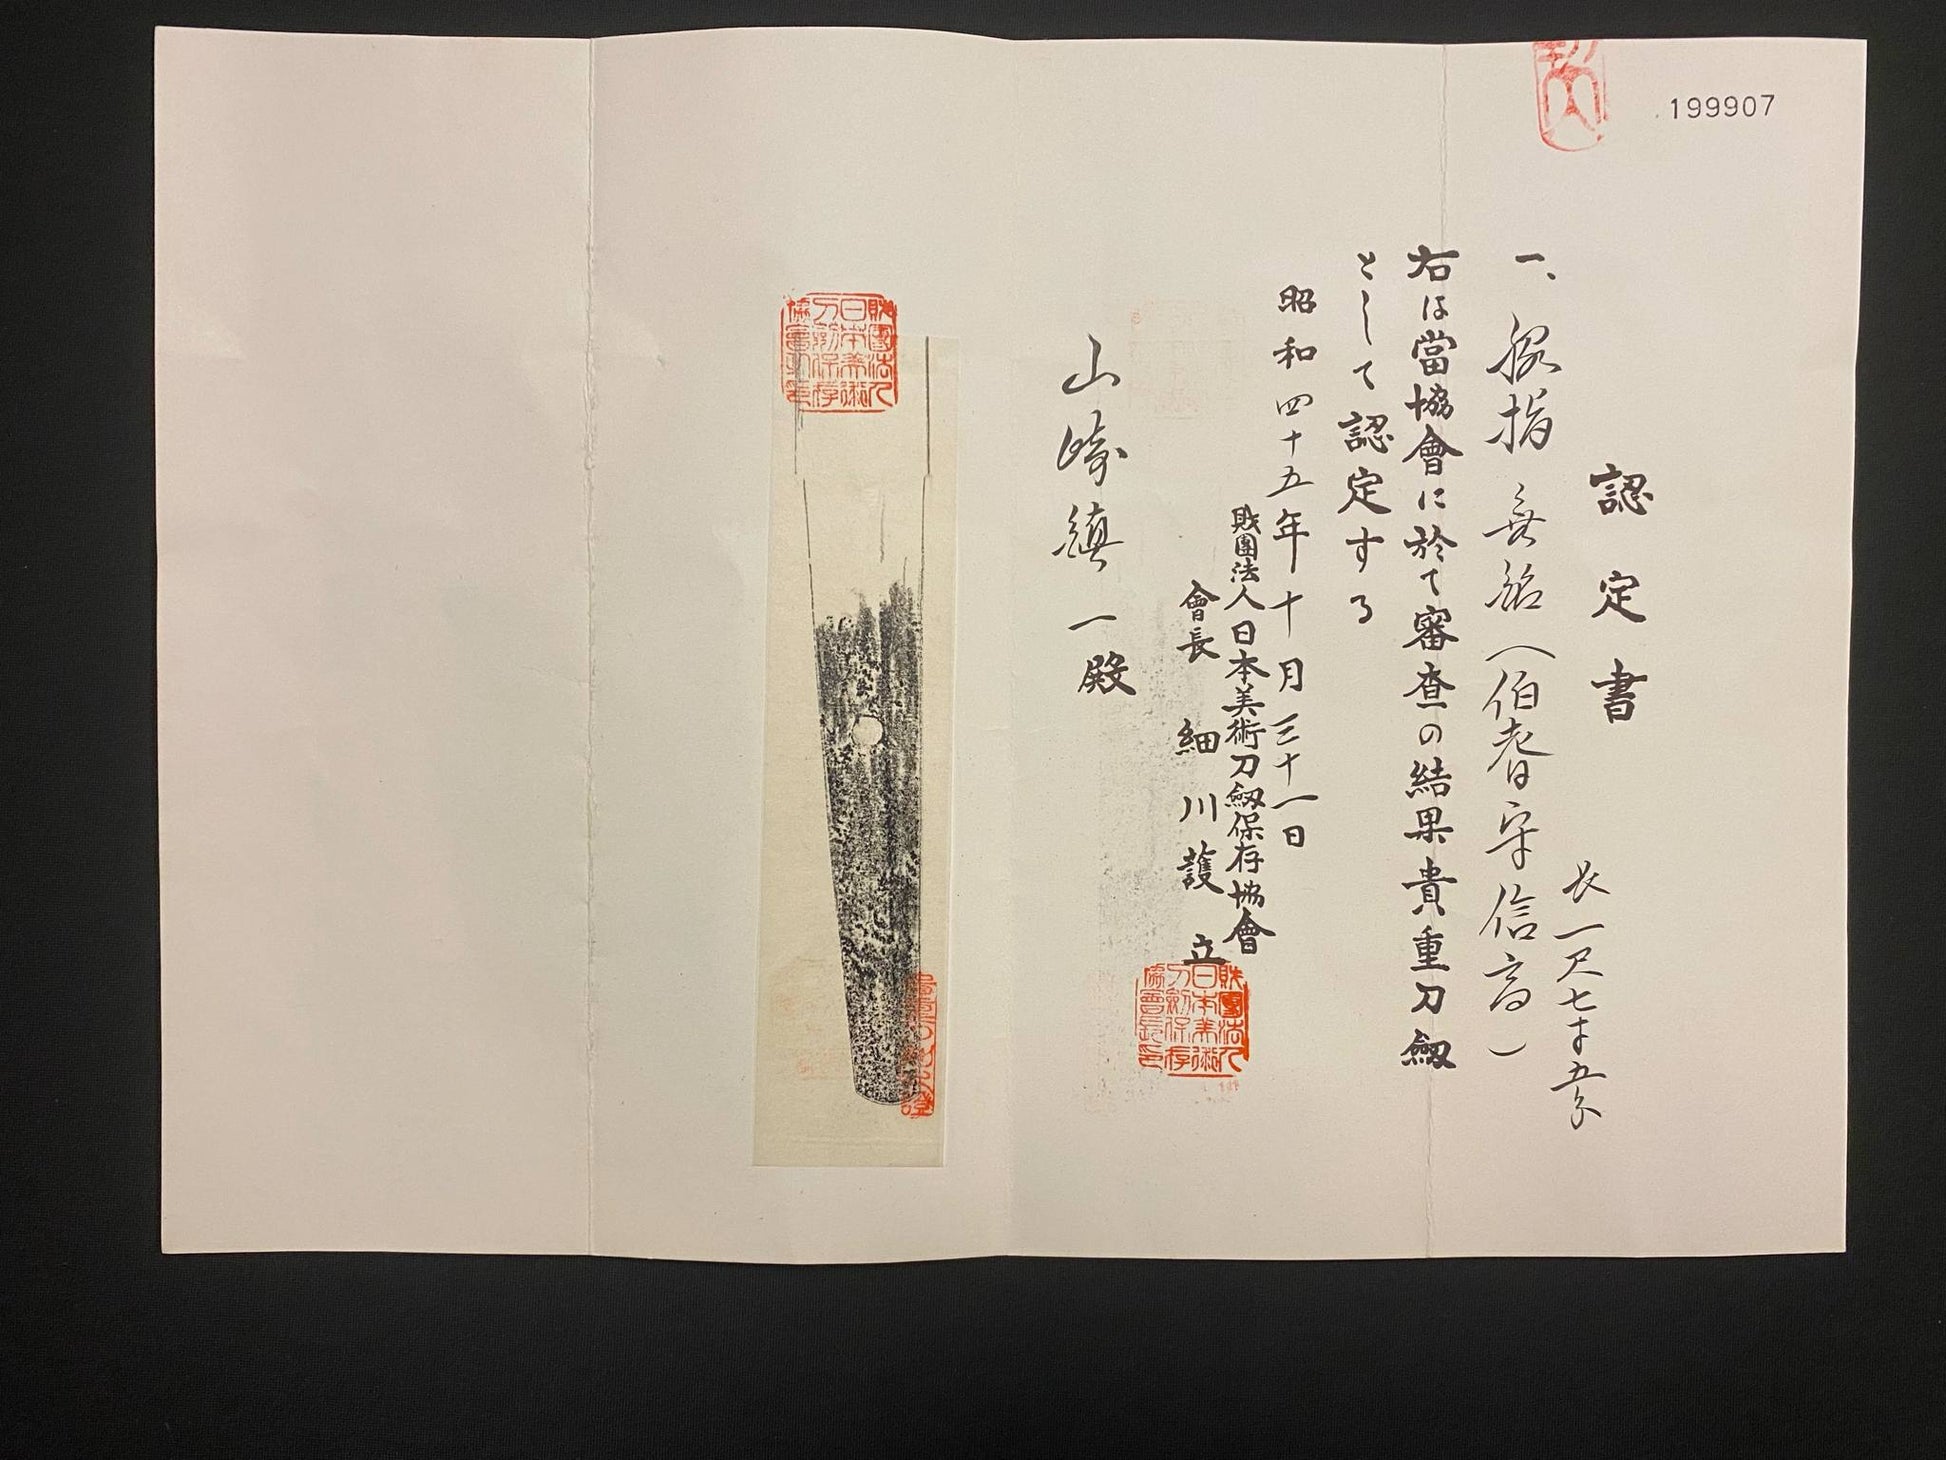 199907
認定書
長一尺七寸五分
一、脇指 無銘(伯耆守信高)
右は當協會に於て審査の結果貴重刀劔
として認定する
昭和四十五年十月三十一日
財團法人日本美術刀劔保存協會
會長 細川護立
財團法人日本美術刀劔保存協會長印
山崎鎮一殿
財團法人日本美術刀劔保存協會之印